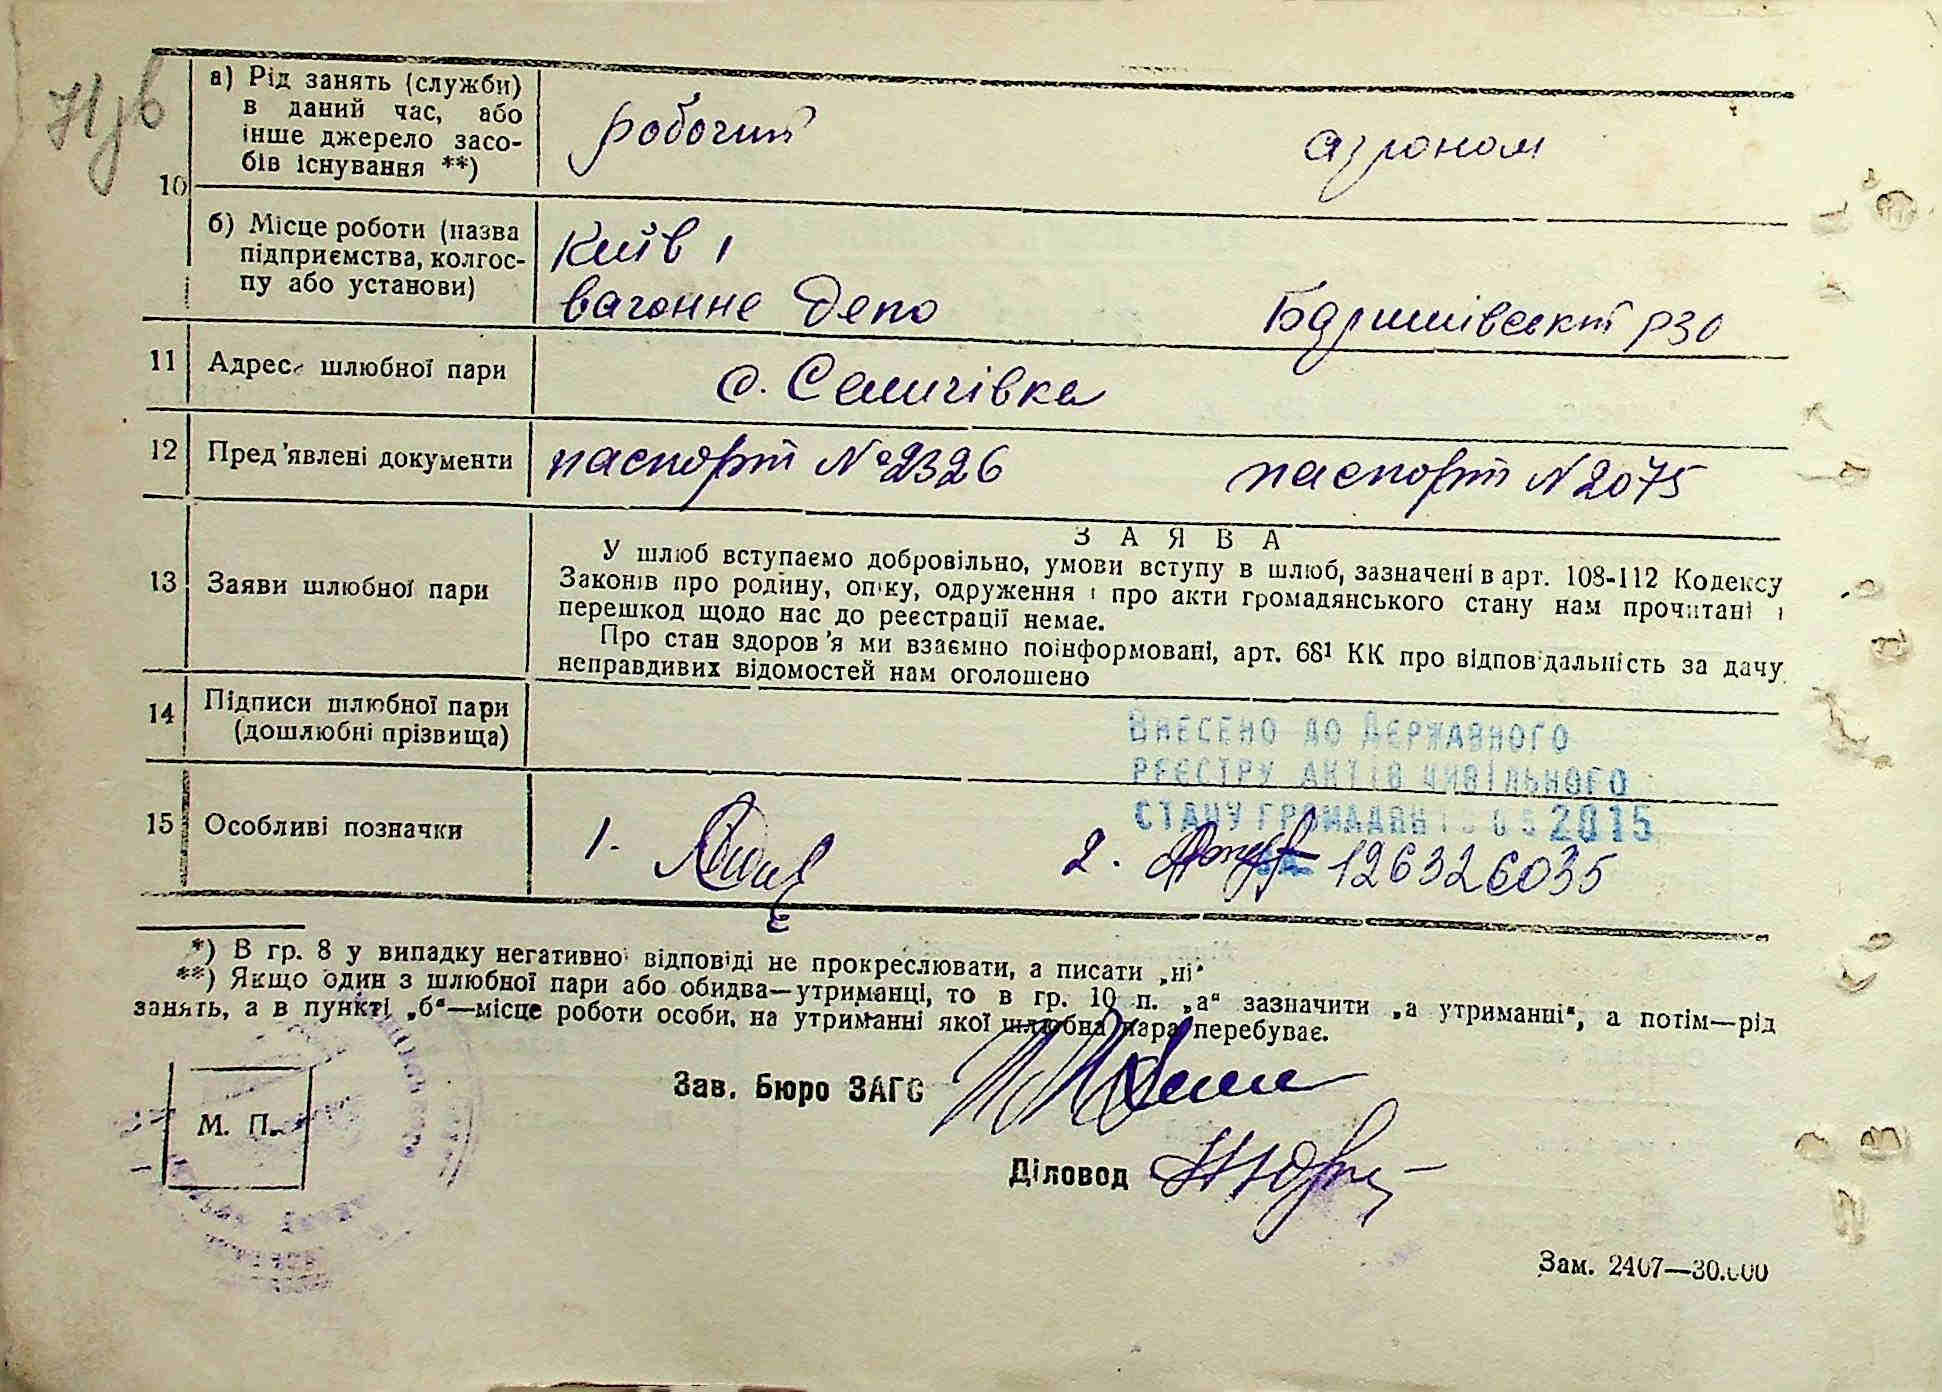 10
а) Рід занять (служби)
в даний час, або
інше джерело засо-
бів існування **)
робочий
агроном
б) Місце роботи (назва
підприємства, колгос-
пу або установи)
Київ 1
вагонне депо
Баришівський РЗО
11 Адреса шлюбної пари
с. Селичівка
12 Пред'явлені документи
паспорт №2326
паспорт N2075
13 Заяви шлюбної пари
ЗАЯВА
У шлюб вступаємо добровільно, умови вступу в шлюб, зазначені в арт. 108-112 Кодексу
Законів про родину, опіку, одруження і про акти громадянського стану нам прочитані і
перешкод щодо нас до реєстрації немає.
Про стан здоров'я ми взаємно поінформовані, арт. 68¹ КК про відповідальність за дачу
неправдивих відомостей нам оголошено
14 Підписи шлюбної пари
(дошлюбні прізвища)
Внесено до Державного
реєстру актів цивільного
стану громадян 2015
15 Особливі позначки
1.
2.
126326035
*) В гр. 8 у випадку негативної відповіді не прокреслювати, а писати „ні“
**) Якщо один з шлюбної пари або обидва—утриманці, то в гр. 10 п. „а“ зазначити „а утриманні“, а потім—рід
занять, а в пункті „б“—місце роботи особи, на утриманні якої шлюбна пара перебуває.
Зав. Бюро ЗАГС
М. П.
Діловод
Зам. 2407—30.000